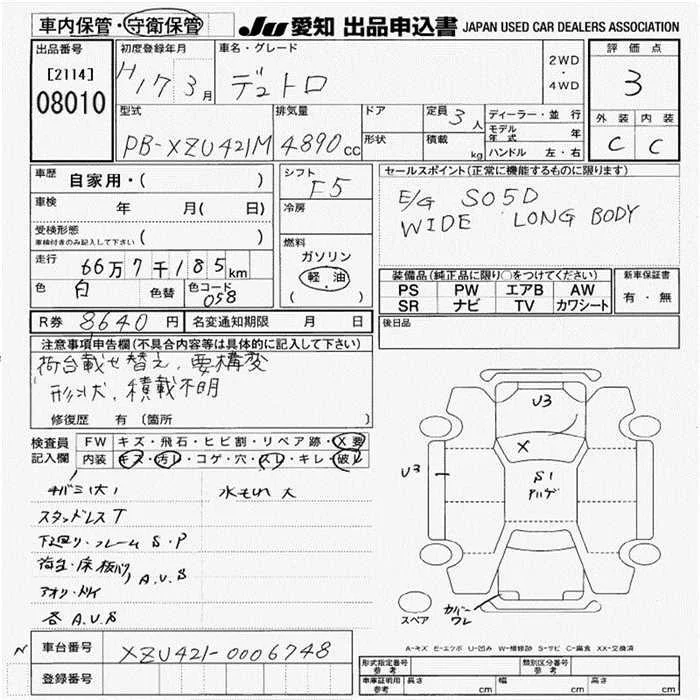 車内保管・守衛保管
JU 愛知 出品申込書 JAPAN USED CAR DEALERS ASSOCIATION
出品番号
[2114]
08010
初度登録年月
H17 3月
車名・グレード
デュトロ
2WD
・
4WD
評価点
3
外装 内装
C C
型式
PB-XZU421M
排気量
4890cc
ドア
形状
定員 3人
積載 kg
ディーラー・並行
モデル年式 年
ハンドル 左・右
車歴 自家用・( )
車検 年 月( 日)
受検形態
車検付きのみ記入して下さい ( )
走行 66万7千185km
色 白 色替 色コード 058
シフト
F5
冷房
燃料
ガソリン
軽・油
( )
セールスポイント(正常に機能するものに限ります)
E/G S05D
WIDE LONG BODY
装備品(純正品に限り○をつけてください)
PS PW エアB AW
SR ナビ TV カワシート
新車保証書
有・無
R券 8640円 名変通知期限 月 日
後日品
注意事項申告欄(不具合内容等は具体的に記入して下さい)
荷台載せ替え、要構変
形状、積載不明
修復歴 有(箇所 )
検査員
記入欄
FW キズ・飛石・ヒビ割・リペア跡・X要
内装 キズ・汚レ・コゲ・穴・スレ・キレ・破レ
水もれ 大
スタッドレス T
下廻り・フレーム S・P
A.U.S
各 A.U.S
U3
X
S1
U3
スペア
カバーワレ
A-キズ E-エクボ U-凹み W-補修跡 S-サビ C-腐食 XX-交換済
N 車台番号 XZU421-0006748
登録番号
形式指定番号 参考
類別区分番号 参考
車庫証明用 参考 長さ cm 幅 cm 高さ cm